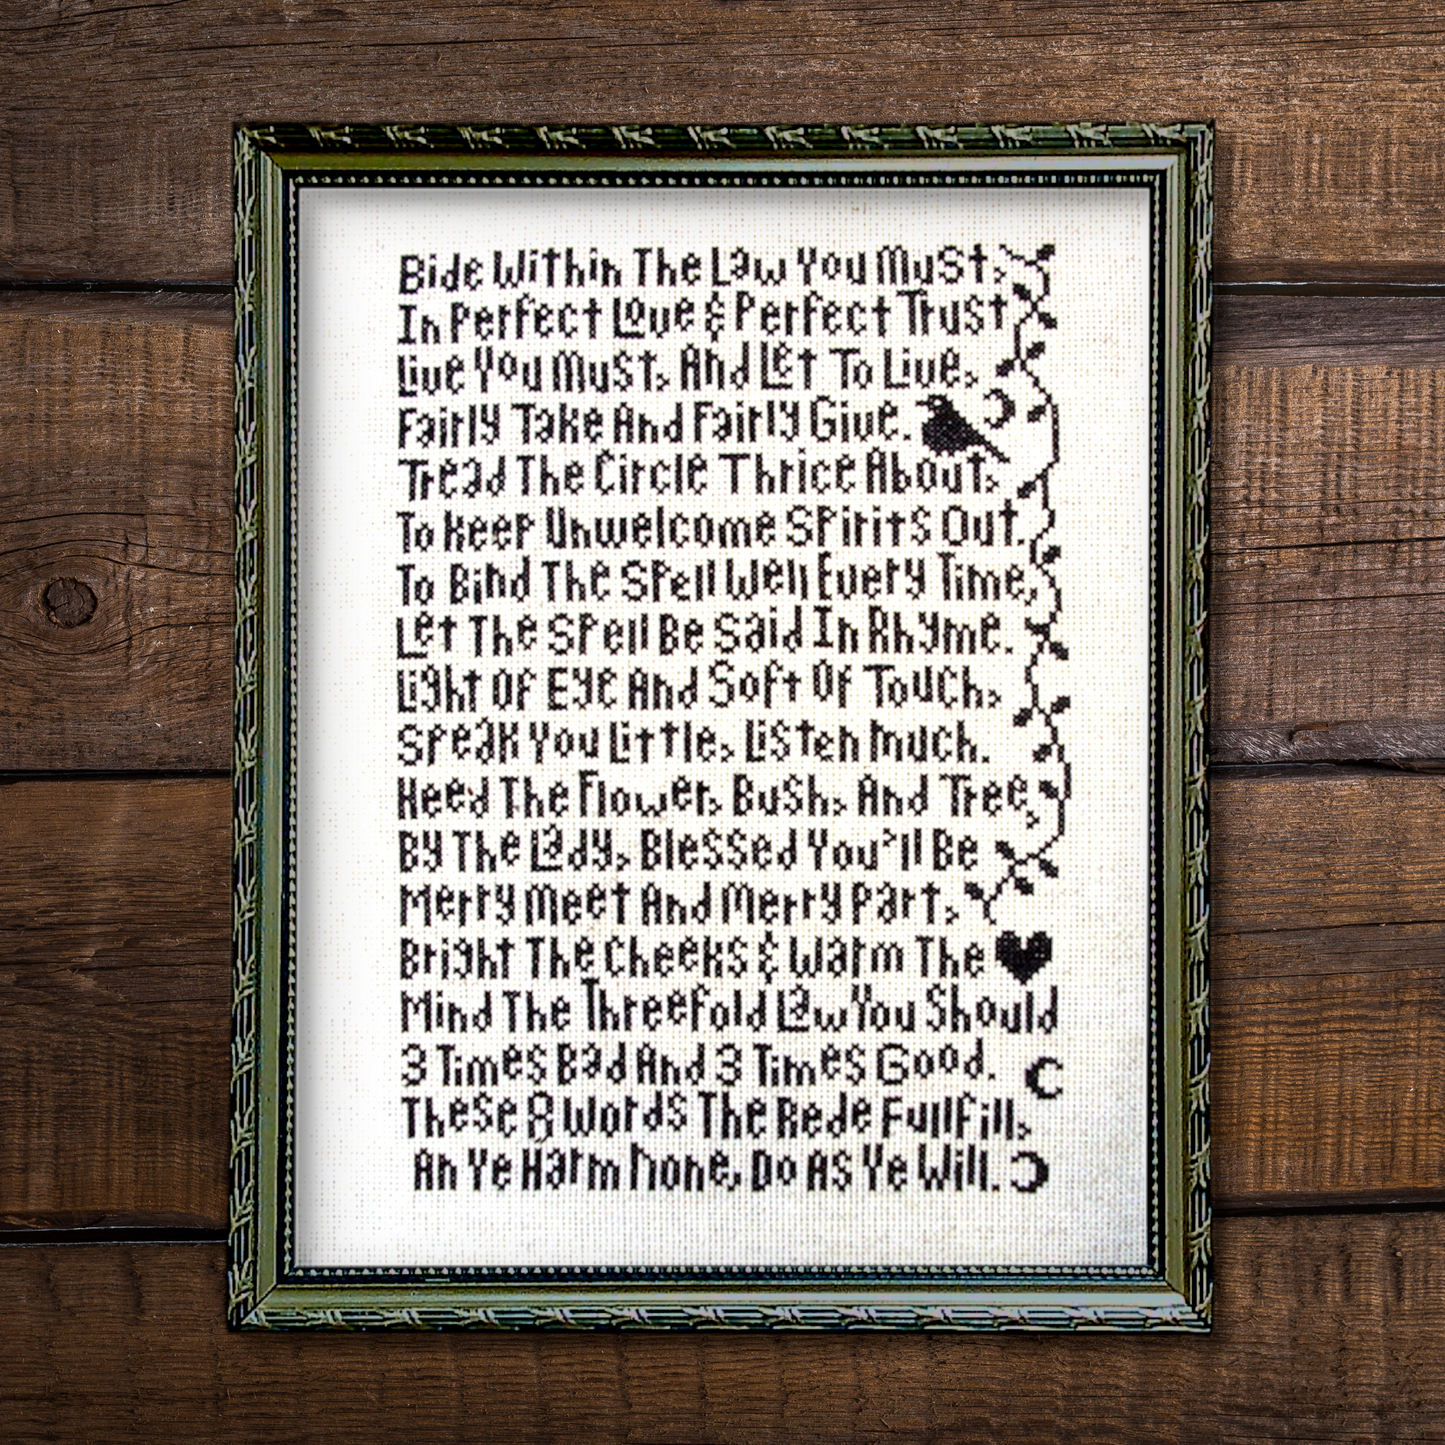 Bide Within The Law You Must,
In Perfect Love & Perfect Trust
Live You Must, And Let To Live,
Fairly Take And Fairly Give.
Tread The Circle Thrice About,
To Keep Unwelcome Spirits Out.
To Bind The Spell Well Every Time,
Let The Spell Be Said In Rhyme.
Light Of Eye And Soft Of Touch,
Speak You Little, Listen Much.
Heed The Flower, Bush, And Tree,
By The Lady, Blessed You'll Be
Merry Meet And Merry Part,
Bright The Cheeks & Warm The
Mind The Threefold Law You Should
3 Times Bad And 3 Times Good.
These 8 Words The Rede Fullfill,
An Ye Harm None, Do As Ye Will.